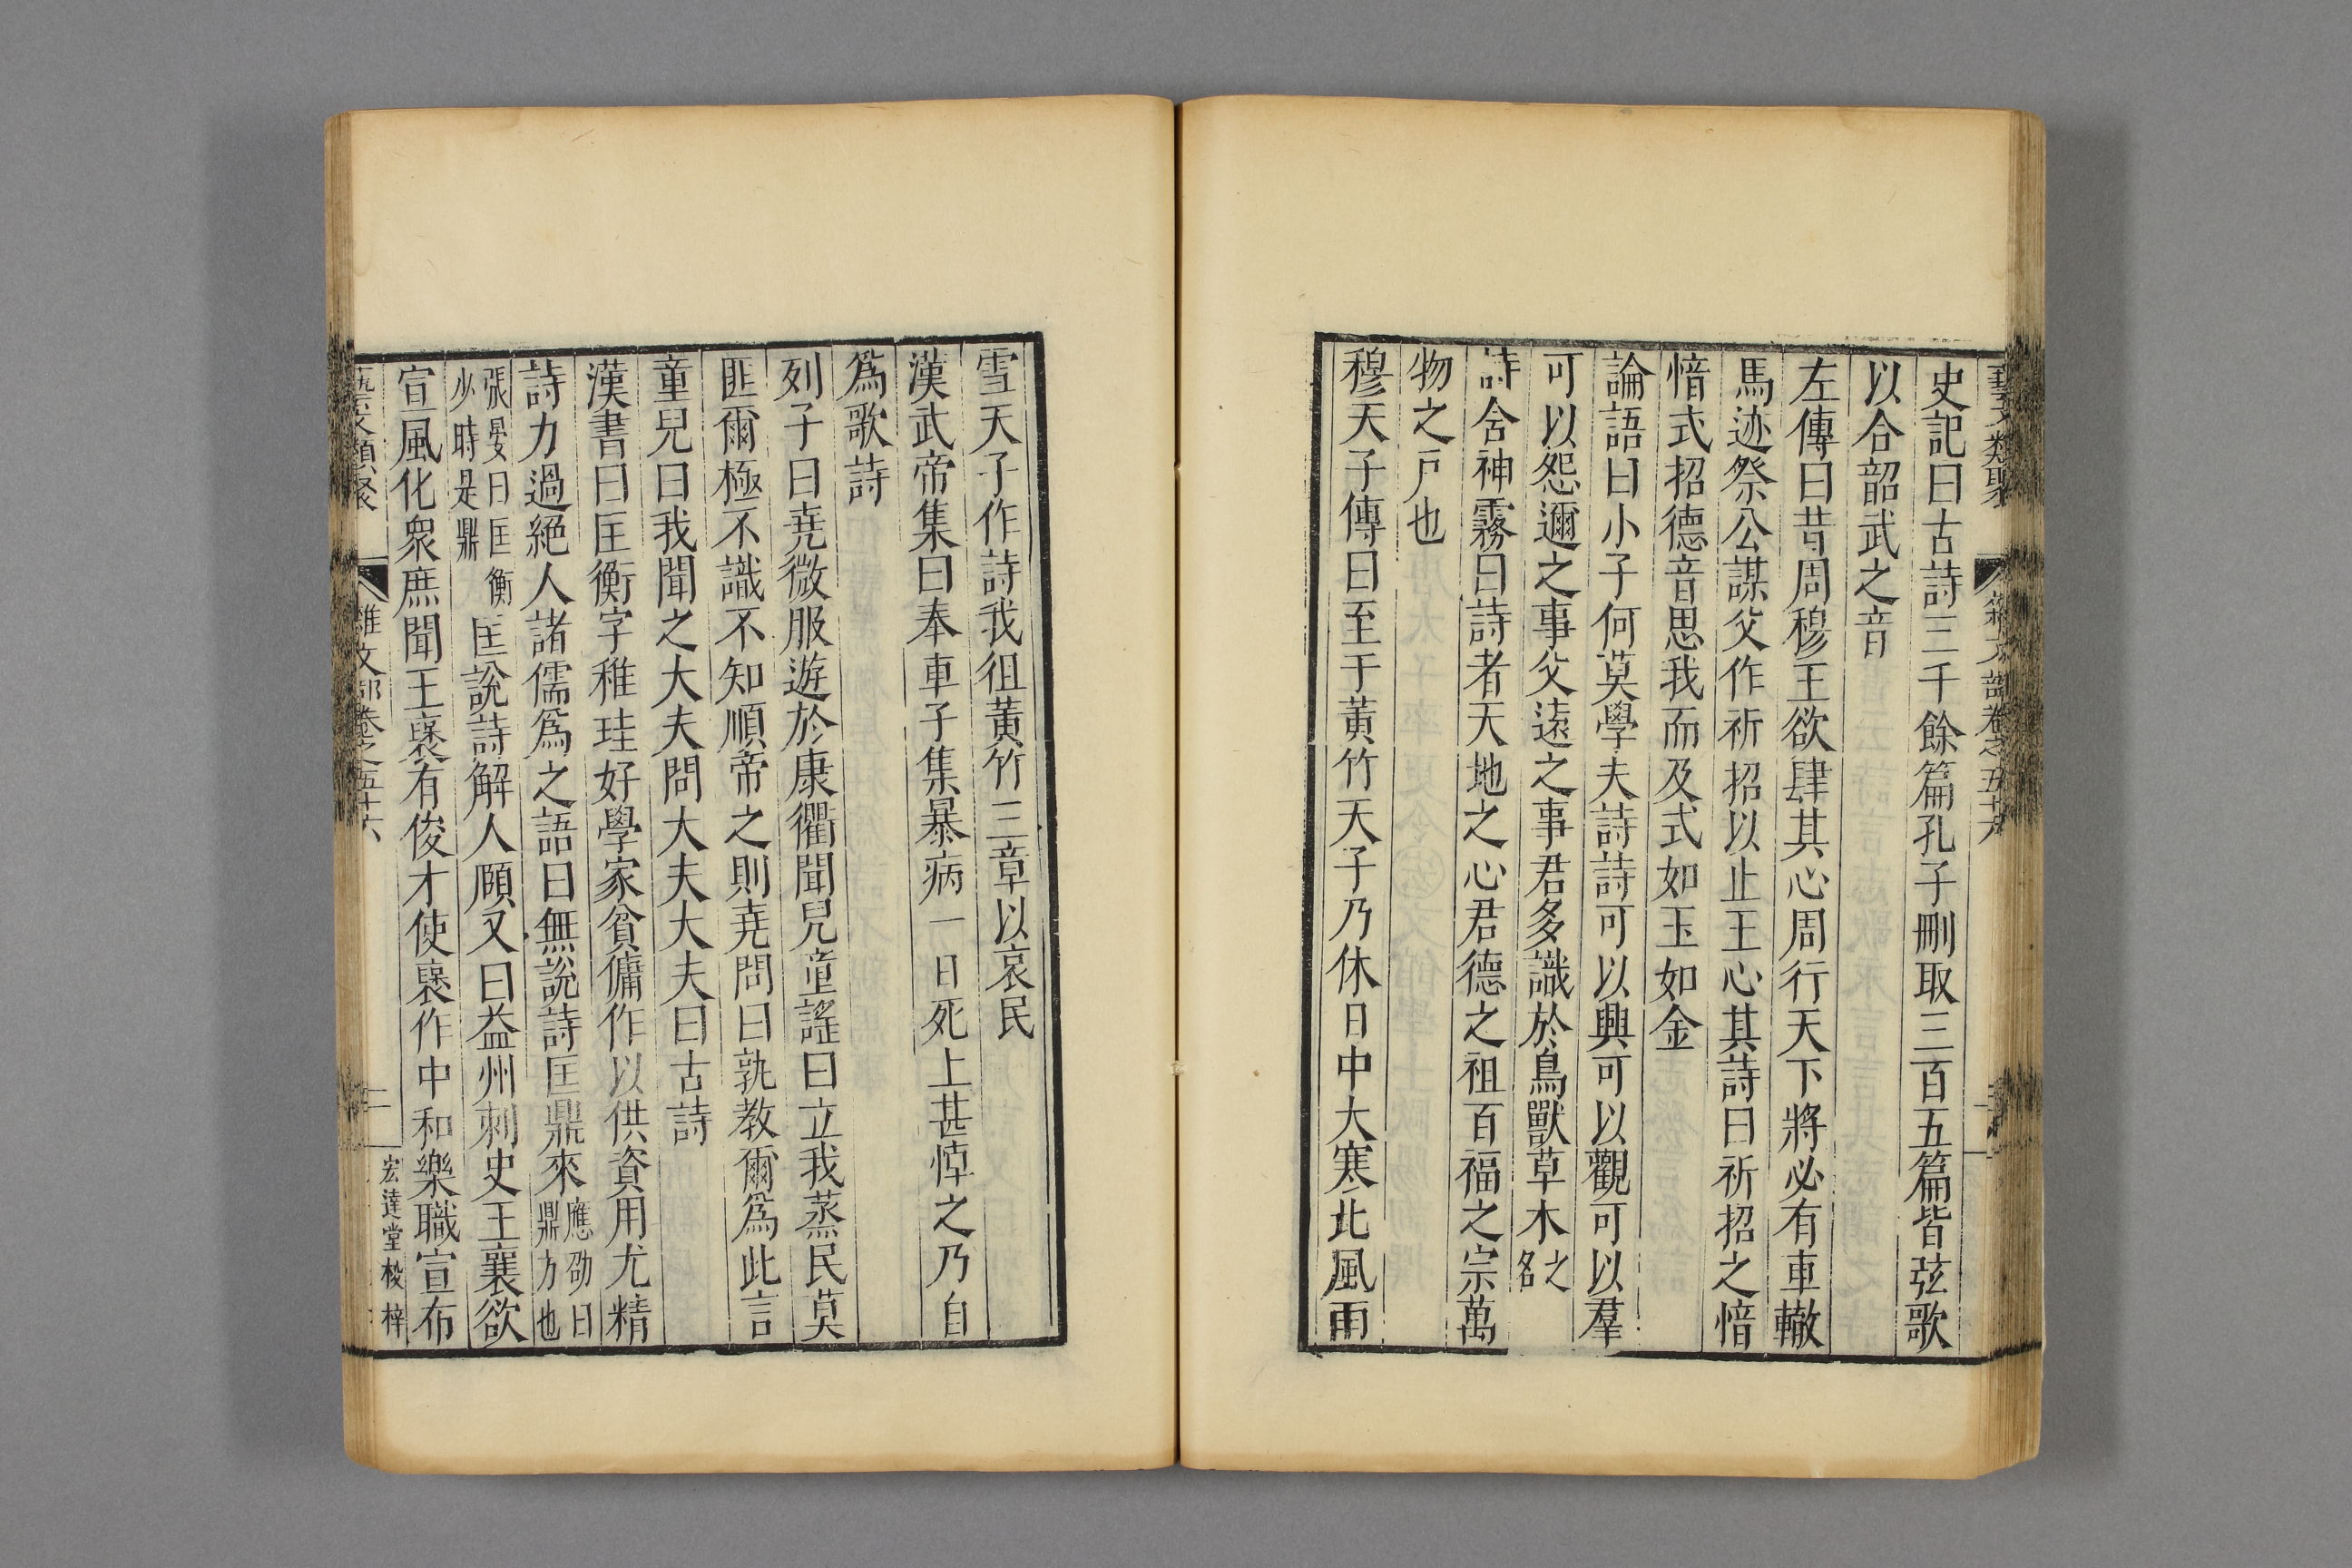 藝文類聚 雜文部卷之五十六
史記曰古詩三千餘篇孔子刪取三百五篇皆弦歌
以合韶武之音
左傳曰昔周穆王欲肆其心周行天下將必有車轍
馬迹祭公謀父作祈招以止王心其詩曰祈招之愔
愔式招德音思我而及式如玉如金
論語曰小子何莫學夫詩詩可以興可以觀可以羣
可以怨邇之事父遠之事君多識於鳥獸草木之名
詩含神霧曰詩者天地之心君德之祖百福之宗萬
物之戸也
穆天子傳曰至于黃竹天子乃休日中大寒北風雨
雪天子作詩我徂黃竹三章以哀民
漢武帝集曰奉車子集暴病一日死上甚悼之乃自
爲歌詩
列子曰堯微服遊於康衢聞兒童謠曰立我蒸民莫
匪爾極不識不知順帝之則堯問曰孰教爾爲此言
童兒曰我聞之大夫問大夫大夫曰古詩
漢書曰匡衡字稚珪好學家貧傭作以供資用尤精
詩力過絕人諸儒爲之語曰無說詩匡鼎來應劭曰鼎方也
張晏曰匡衡少時是鼎匡說詩解人頤又曰益州刺史王襄欲
宣風化衆庶聞王褒有俊才使褒作中和樂職宣布
藝文類聚 雜文部卷之五十六 二 宏達堂校梓